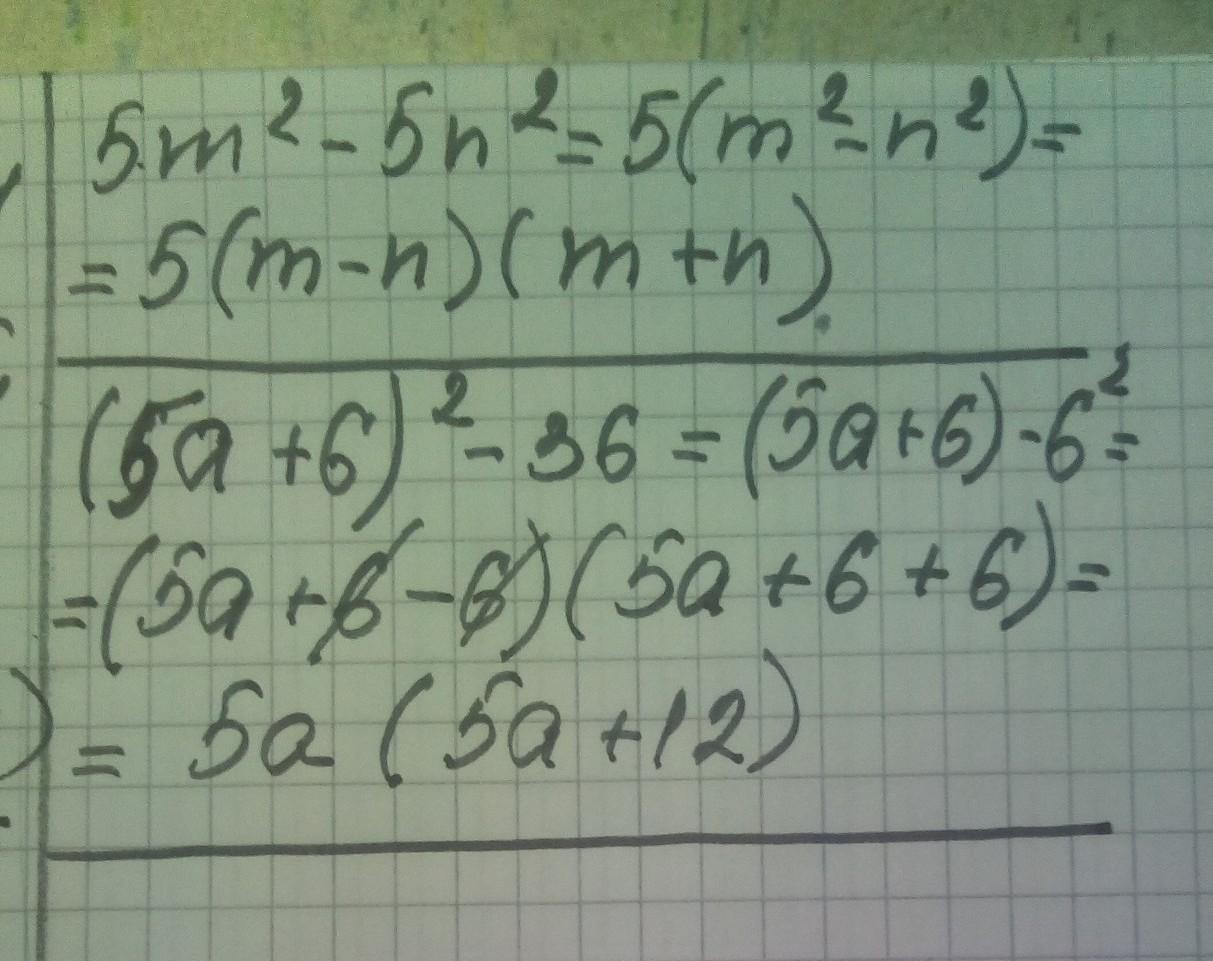 5m² - 5n² = 5(m² - n²) =
= 5(m - n)(m + n).
(5a + 6)² - 36 = (5a + 6) - 6² =
= (5a + 6 - 6)(5a + 6 + 6) =
= 5a (5a + 12)